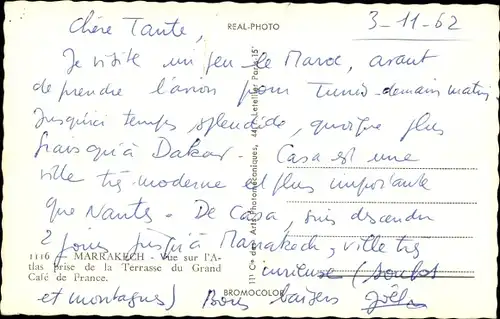 REAL-PHOTO
3-11-62
Chère Tante,
Je visite un peu le Maroc, avant
de prendre l'avion pour Tunis demain matin
Jusqu'ici temps splendide, quoique plus
frais qu'à Dakar. Casa est une
ville très moderne et plus importante
que Nantes. De Casa, suis descendu
2 jours jusqu'à Marrakech, ville très
curieuse (souks
et montagnes) Bons baisers Joël
1116 - MARRAKECH - Vue sur l'A-
tlas prise de la Terrasse du Grand
Café de France.
111 Cie des Arts Photomécaniques, 44, Letellier Paris 15
BROMOCOLOR